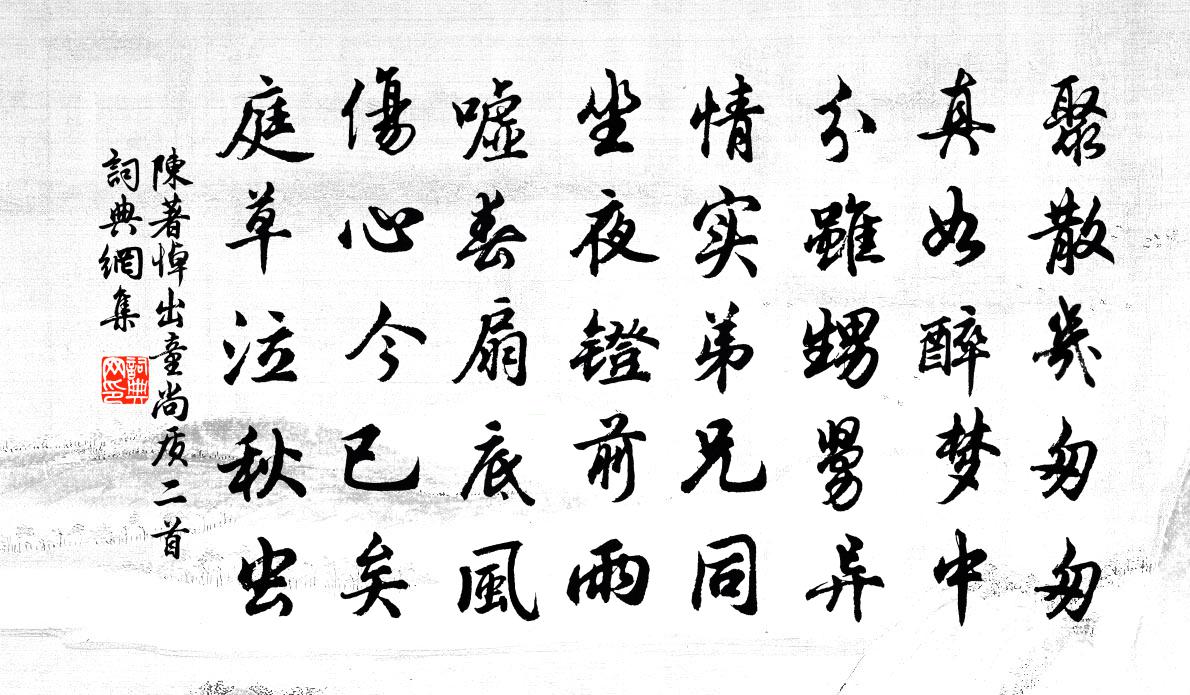 聚散幾匆匆
真如醉梦中
分雖甥舅异
情实弟兄同
坐夜鐙前雨
噓春扇底風
傷心今已矣
庭草泣秋虫
陳著悼出童尚质二首
詞典網集
詞典网印